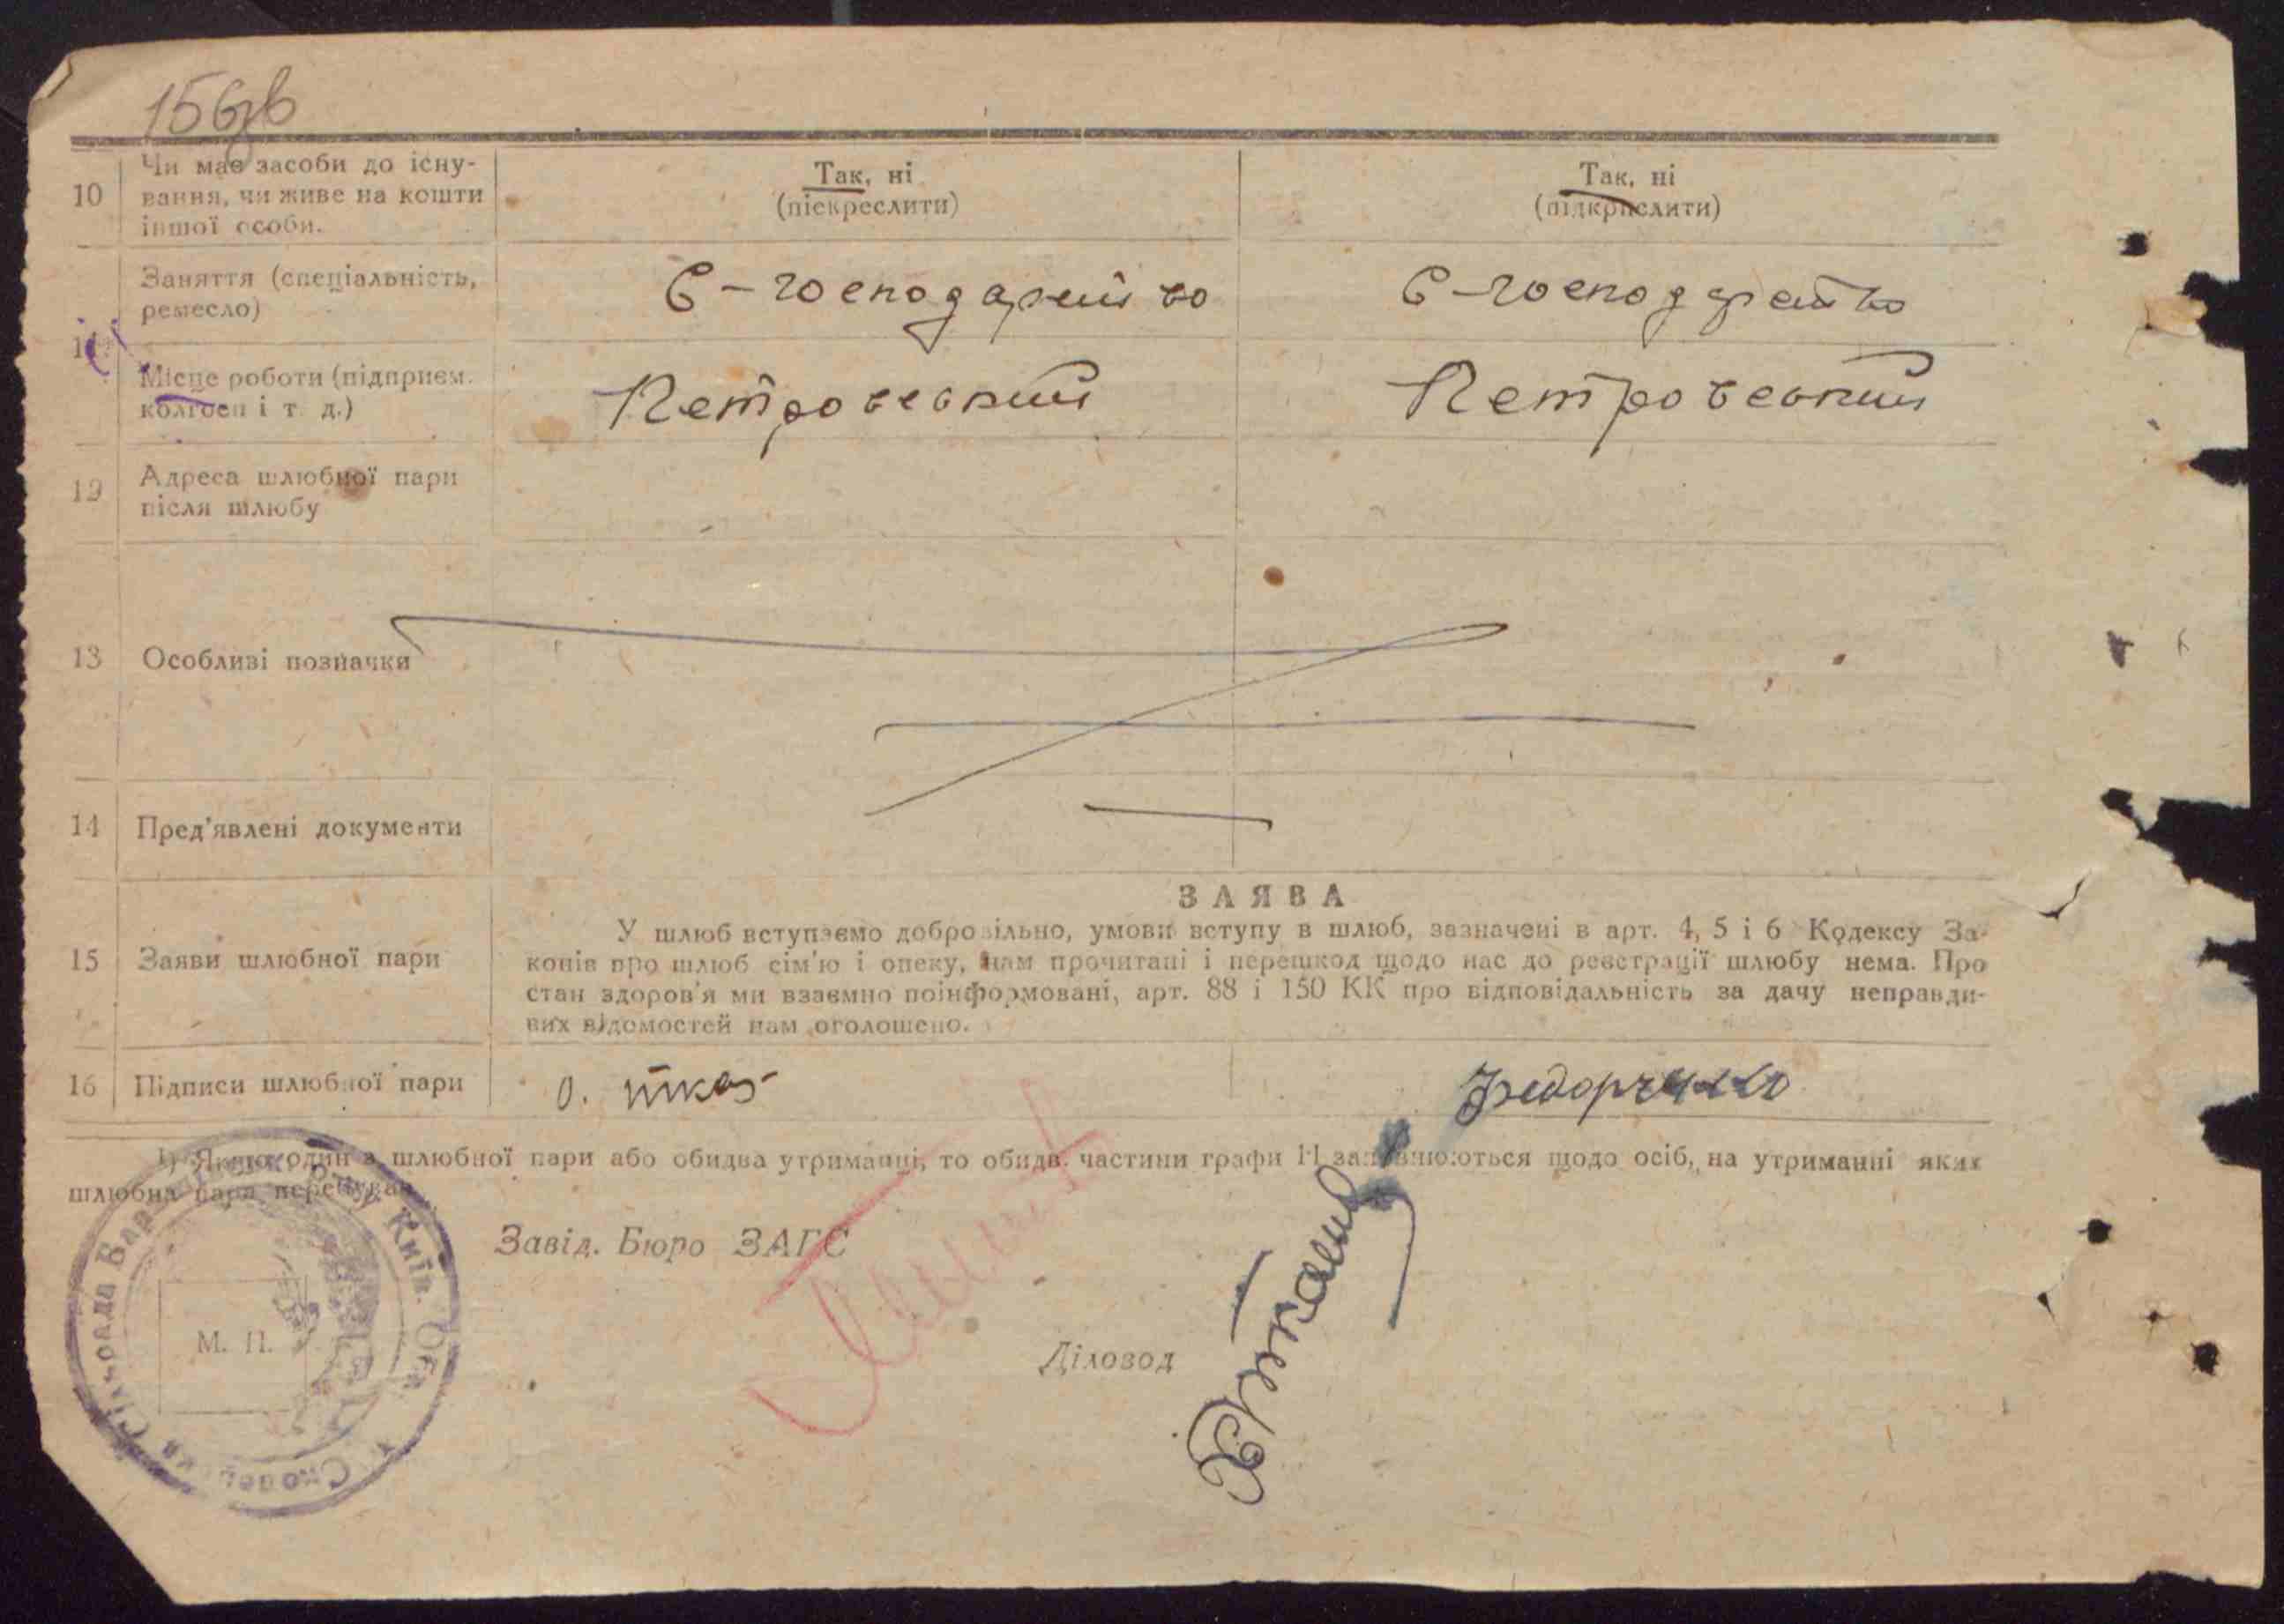 156зв
10 Чи має засоби до існу- Так, ні Так, ні
вання, чи живе на кошти (піскреслити) (підкреслити)
іншої особи.
Заняття (спеціальність, С-господарство С-господарство
ремесло)
11
Місце роботи (підприєм. Петровський Петровський
колгосп і т. д.)
12 Адреса шлюбної пари
після шлюбу
13 Особливі позначки
14 Пред'явлені документи
ЗАЯВА
У шлюб вступаємо добровільно, умови вступу в шлюб, зазначені в арт. 4, 5 і 6 Кодексу За-
15 Заяви шлюбної пари конів про шлюб сім'ю і опеку, нам прочитані і перешкод щодо нас до реєстрації шлюбу нема. Про
стан здоров'я ми взаємно поінформовані, арт. 88 і 150 КК про відповідальність за дачу неправди-
вих відомостей нам оголошено.
16 Підписи шлюбної пари О. Ткач Федорченко
1) Якщо один з шлюбної пари або обидва утриманці, то обидв. частини графи 11 заповнюються щодо осіб, на утриманні яких
шлюбна пара перебуває
Завід. Бюро ЗАГС
М. П.
Діловод
Сільрада Київ. Обл.